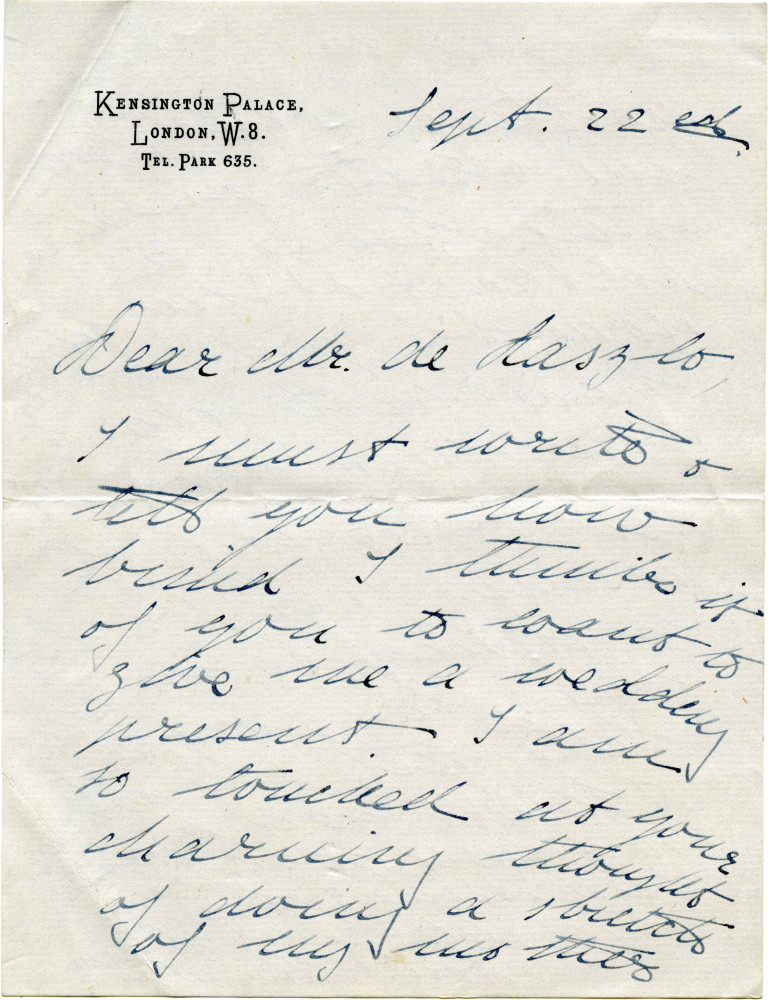 KENSINGTON PALACE,
LONDON, W.8.
TEL. PARK 635.
Sept. 22ed
Dear Mr. de Laszlo,
I must write &
tell you how
kind I think it
of you to want to
give me a wedding
present. I am
so touched at your
charming thought
of doing a sketch
of my mother